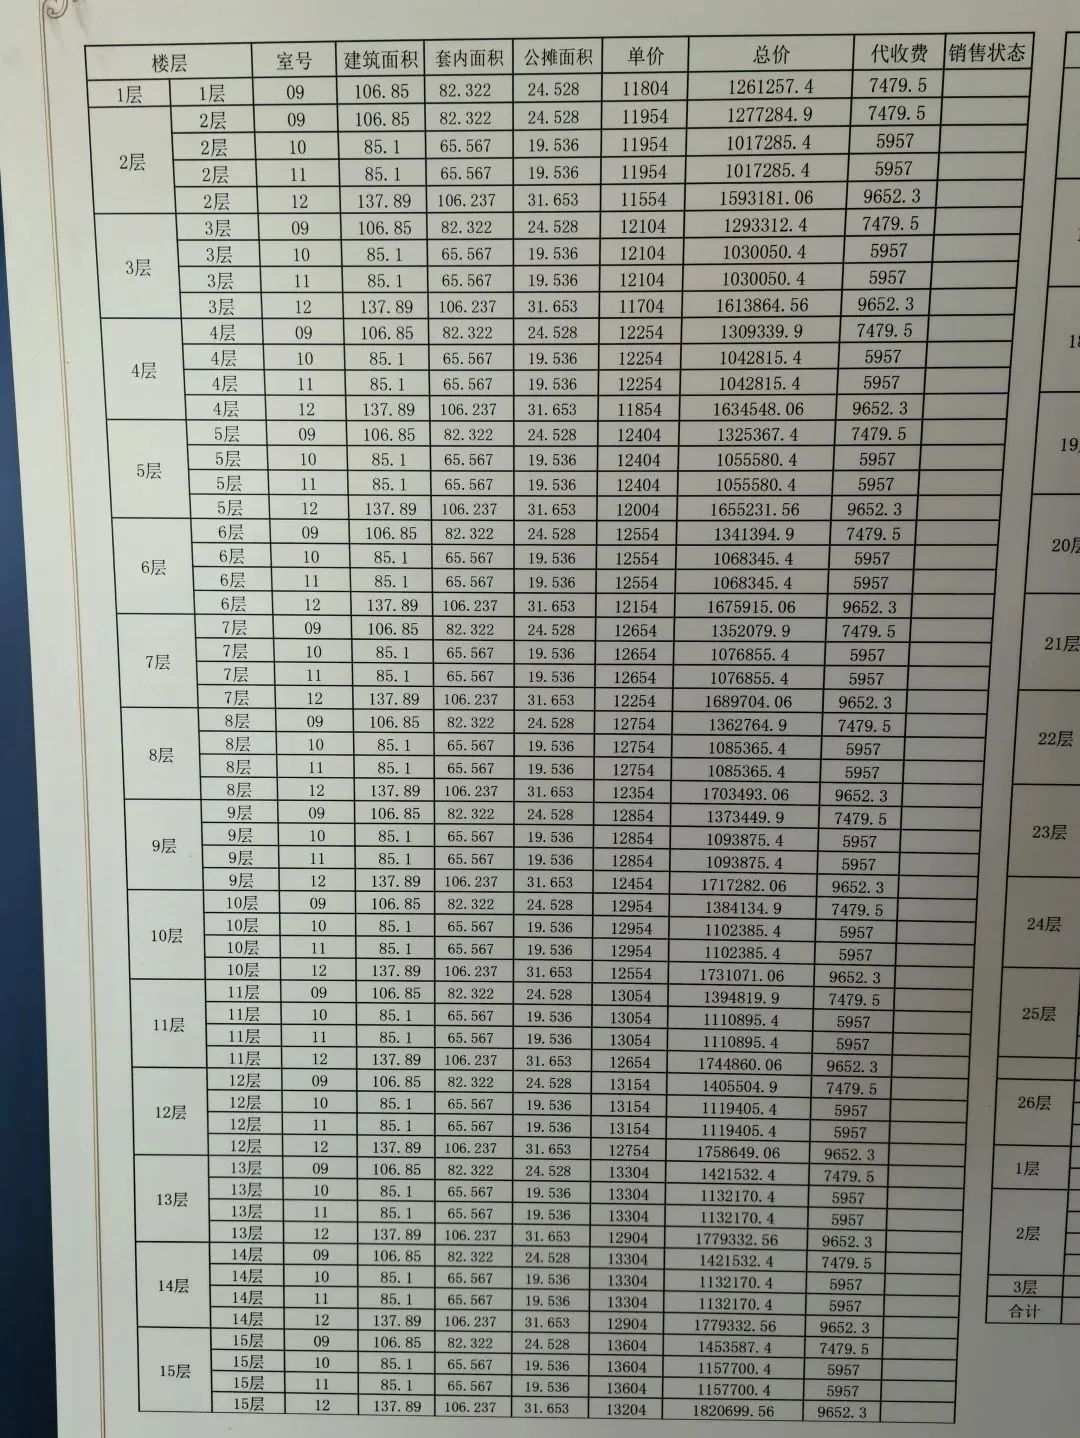 楼层 室号 建筑面积 套内面积 公摊面积 单价 总价 代收费 销售状态
1层 1层 09 106.85 82.322 24.528 11804 1261257.4 7479.5
2层 2层 09 106.85 82.322 24.528 11954 1277284.9 7479.5
2层 10 85.1 65.567 19.536 11954 1017285.4 5957
2层 11 85.1 65.567 19.536 11954 1017285.4 5957
2层 12 137.89 106.237 31.653 11554 1593181.06 9652.3
3层 3层 09 106.85 82.322 24.528 12104 1293312.4 7479.5
3层 10 85.1 65.567 19.536 12104 1030050.4 5957
3层 11 85.1 65.567 19.536 12104 1030050.4 5957
3层 12 137.89 106.237 31.653 11704 1613864.56 9652.3
4层 4层 09 106.85 82.322 24.528 12254 1309339.9 7479.5
4层 10 85.1 65.567 19.536 12254 1042815.4 5957
4层 11 85.1 65.567 19.536 12254 1042815.4 5957
4层 12 137.89 106.237 31.653 11854 1634548.06 9652.3
5层 5层 09 106.85 82.322 24.528 12404 1325367.4 7479.5
5层 10 85.1 65.567 19.536 12404 1055580.4 5957
5层 11 85.1 65.567 19.536 12404 1055580.4 5957
5层 12 137.89 106.237 31.653 12004 1655231.56 9652.3
6层 6层 09 106.85 82.322 24.528 12554 1341394.9 7479.5
6层 10 85.1 65.567 19.536 12554 1068345.4 5957
6层 11 85.1 65.567 19.536 12554 1068345.4 5957
6层 12 137.89 106.237 31.653 12154 1675915.06 9652.3
7层 7层 09 106.85 82.322 24.528 12654 1352079.9 7479.5
7层 10 85.1 65.567 19.536 12654 1076855.4 5957
7层 11 85.1 65.567 19.536 12654 1076855.4 5957
7层 12 137.89 106.237 31.653 12254 1689704.06 9652.3
8层 8层 09 106.85 82.322 24.528 12754 1362764.9 7479.5
8层 10 85.1 65.567 19.536 12754 1085365.4 5957
8层 11 85.1 65.567 19.536 12754 1085365.4 5957
8层 12 137.89 106.237 31.653 12354 1703493.06 9652.3
9层 9层 09 106.85 82.322 24.528 12854 1373449.9 7479.5
9层 10 85.1 65.567 19.536 12854 1093875.4 5957
9层 11 85.1 65.567 19.536 12854 1093875.4 5957
9层 12 137.89 106.237 31.653 12454 1717282.06 9652.3
10层 10层 09 106.85 82.322 24.528 12954 1384134.9 7479.5
10层 10 85.1 65.567 19.536 12954 1102385.4 5957
10层 11 85.1 65.567 19.536 12954 1102385.4 5957
10层 12 137.89 106.237 31.653 12554 1731071.06 9652.3
11层 11层 09 106.85 82.322 24.528 13054 1394819.9 7479.5
11层 10 85.1 65.567 19.536 13054 1110895.4 5957
11层 11 85.1 65.567 19.536 13054 1110895.4 5957
11层 12 137.89 106.237 31.653 12654 1744860.06 9652.3
12层 12层 09 106.85 82.322 24.528 13154 1405504.9 7479.5
12层 10 85.1 65.567 19.536 13154 1119405.4 5957
12层 11 85.1 65.567 19.536 13154 1119405.4 5957
12层 12 137.89 106.237 31.653 12754 1758649.06 9652.3
13层 13层 09 106.85 82.322 24.528 13304 1421532.4 7479.5
13层 10 85.1 65.567 19.536 13304 1132170.4 5957
13层 11 85.1 65.567 19.536 13304 1132170.4 5957
13层 12 137.89 106.237 31.653 12904 1779332.56 9652.3
14层 14层 09 106.85 82.322 24.528 13304 1421532.4 7479.5
14层 10 85.1 65.567 19.536 13304 1132170.4 5957
14层 11 85.1 65.567 19.536 13304 1132170.4 5957
14层 12 137.89 106.237 31.653 12904 1779332.56 9652.3
15层 15层 09 106.85 82.322 24.528 13604 1453587.4 7479.5
15层 10 85.1 65.567 19.536 13604 1157700.4 5957
15层 11 85.1 65.567 19.536 13604 1157700.4 5957
15层 12 137.89 106.237 31.653 13204 1820699.56 9652.3
18
19
20层
21层
22层
23层
24层
25层
26层
1层
2层
3层
合计